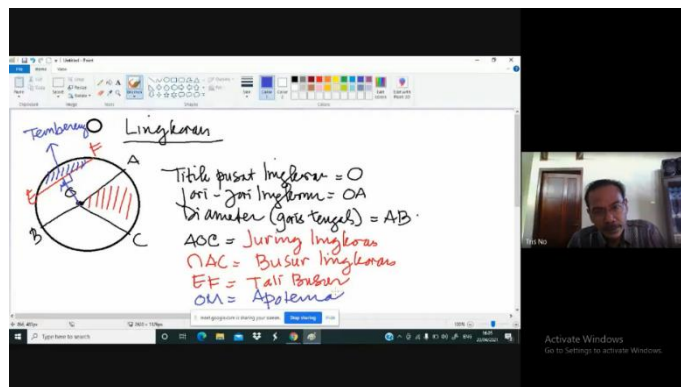 Untitled - Paint
File
Home
View
Tembereng
Lingkaran
F
A
M
E
O
B
C
Titik pusat lingkaran = O
Jari-Jari lingkaran = OA
Diameter (garis tengah) = AB.
AOC = Juring lingkaran
∩AC = Busur lingkaran
EF = Tali Busur
OM = Apotema
Stop sharing
Hide
100%
Type here to search
ENG
Tris No
Activate Windows
Go to Settings to activate Windows.